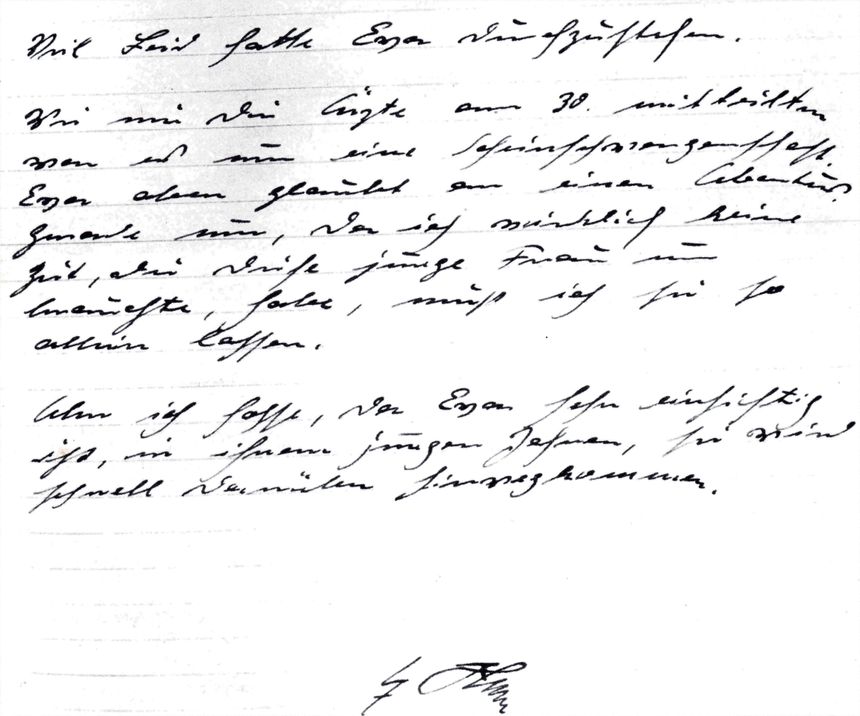 Viel Leid hatte Eva durchzustehen.
Wie mir die Ärzte am 30. mitteilten
war es nur eine Scheinschwangerschaft.
Eva aber glaubt an einen Abortus.
Gerade nun, da ich wirklich keine
Zeit, die diese junge Frau nun
brauchte, habe, muß ich sie so
allein lassen.
Aber ich hoffe, da Eva sehr einsichtig
ist, in ihren jungen Jahren, sie wird
schnell darüber hinwegkommen.